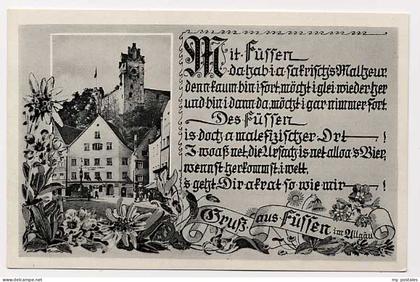 Mit Füssen
da hab i a sakrisch's Malheur,
denn kaum bin i fort, möcht i glei wieder her
und bin i dann da, möcht i gar nimmer fort.
Des Füssen
is doch a malefizischer Ort — !
I woaß net, die Ursach is net alloa's Bier,
wennst herkommst, i wett,
s' geht Dir akrat so wie mir — !
Gruß aus Füssen im Allgäu